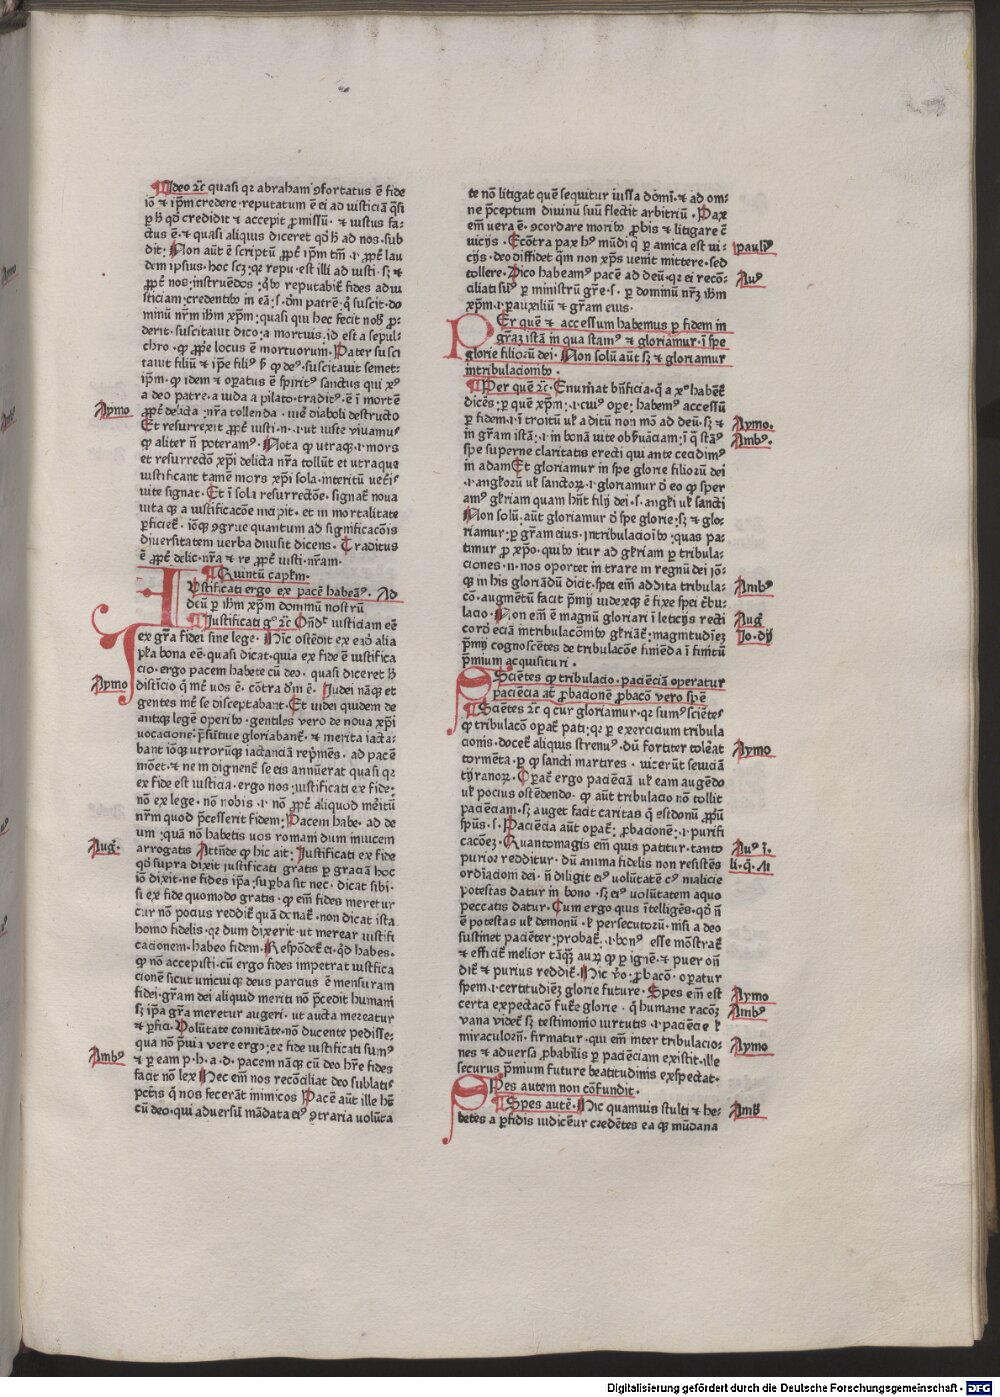 Ideo ⁊c̄ quasi qꝛ abraham ꝯfortatus ē fide
iō ⁊ ip̄m credere reputatum ē ei ad iusticiā q̄si
ꝑ h̄ qd̄ credidit ⁊ accepit ꝓmissū ⁊ iustus fa⸗
ctus ē ⁊ quasi aliquis diceret qd̄ h̄ ad nos sub
dit: Non aūt ē scriptū ꝓpt̄ ip̄m tm̄ .i. ꝓpt̄ lau
dem ipsius. hoc scꝫ: qꝛ repu. est illi ad iusti. sꝫ ⁊
ꝓpt̄ nos: instruēdos: qb̄ꝰ reputabit̄ fides ad iu
sticiam: credentibꝰ in eā: .s. dn̄i patrē: q̄ suscit. do
minū nr̄m ihm̄ xp̄m: quasi qui hec fecit nob̄ ꝓ⸗
derit. suscitauit dico: a mortuis. id est a sepul⸗
chro. ꝙ ꝓpe locus ē mortuorum. Pater susci
tauit filiū ⁊ ip̄e filiꝰ
ip̄m. ꝙ idem ⁊ oꝑatus ē spiritꝰ sanctus qui xꝰ
a deo patre. a iuda a pilato. traditꝰ. ē ī mortē
Aymo
ꝓpt̄ delicta: nr̄a tollenda diaboli destructo
Et resurrexit ꝓpt̄ iusti. n. .i. ut iuste viuamꝰ
ꝙ aliter n̄ poteramꝰ. Nota ꝙ utraqꝫ .i. mors
et resurrectō xp̄i delicta nr̄a tollūt et utraque
iustificant tamē mors xp̄i sola. interitū uet̄is
uite signat. Et ī sola resurrectōe. signat̄ noua
uita qꝫ a iustificacōe incipit. et in mortalitate
ꝑficiet̄. iōqꝫ ꝯgrue quantum ad significacōis
diuersitatem uerba diuisit dicens. Traditus
ē ꝓpt̄ delic. nr̄a ⁊ re ꝓpt̄ iusti. nr̄am.
Quintū capl̄m.
Iustificati ergo ex pacē habeāꝰ. Ad
deū ꝑ ihm̄ xp̄m dominū nostrū
Justificati gº ⁊c̄ Ond̄t iusticiam eē
ex gr̄a fidei sine lege. Hic ostēdit ex eadē alia
bona eē. quasi dicat. quia ex fide ē iustifica
cio. ergo pacem habete cū deo. quasi diceret h̄
Aymo
distīcio q̄ mō uos ē. cōtra dm̄ ē. Iudei nāqꝫ et
gentes inē se disceptabant. Et uidei quidem de
antiqꝫ legē operibꝰ. gentiles vero de noua xp̄i
uocacione: gloriabant̄. ⁊ merita iacta⸗
bant iōqꝫ utrorūqꝫ iactanciā rep̄mēs. ad pacē
mōet: ⁊ ne īdignent̄ se eis annūerat quasi qꝛ
ex fide est iusticia. ergo nos: iustificati ex fide:
nō ex lege. nō nobis .i. nō ꝓpt̄ aliquod meītū
nr̄m quod p̄cesserit fidem: Pacem habe. ad de
um: quā nō habetis uos romani dum inuicem
Auḡ.
arrogatis Attēde ꝙ hic ait: Justificati ex fide
qd̄ supra dixit iustificati gratis ꝑ graciā hoc
iō dixit. ne fides ip̄a: suꝑba sit nec. dicat sibi.
si ex fide quomodo gratis. ꝙ em̄ fides meretur
cur nō pocius reddit̄ quā donat̄. non dicat ista
homo fidelis. qꝛ dum dixerit. ut merear iustifi
cacionem. habeo fidem. Respōdet̄ ei. qd̄ habes.
ꝙ nō accepisti. cū ergo fides impetrat iustifica
cionē sicut unicuiqꝫ deus parcius ē mensuram
fidei. gr̄am dei aliquid meriti nō p̄cedit humani
sꝫ ip̄a gr̄a meretur augeri. ut aucta mereatur
⁊ ꝑfici. Volūtate comitāte. nō ducente pedisse⸗
qua nō p̄uia vere ergo: ex fide iustificati sumꝰ
Ambꝰ
⁊ ꝑ eam p. h. a. d. pacem nāqꝫ cū deo hr̄e fides
facit nō lex Nec em̄ nos recōciliat deo sublatis
pctīs q̄ nos fecerāt inimicos Pacē aūt ille h̄t
cū deo. qui adversū mādata eiꝰ ꝯtraria volūta
te nō litigat quē sequitur iussa domī. ⁊ ad om⸗
ne p̄ceptum diuinū suū flectit arbitriū. Pax
em̄ uera ē. ꝯcordare moribꝰ ꝓbis ⁊ litigare ē
uicijs. Ecōtra pax hꝰ mūdi q̄ ꝑ amica est ui⸗
paulīꝰ
cijs. deo diffidet qm̄ non xp̄s uenit mittere. sed
tollere. Dico habeamꝰ pacē ad deū. qꝛ ei recō⸗
Auꝰ
ciliati sūꝰ ꝑ ministrū gr̄e .s. ꝑ dominū nr̄ꝫ ihm̄
xp̄m .i. ꝑ auxiliū ⁊ gr̄am eius.
Per quē ⁊ accessum habemus ꝑ fidem in
gr̄aꝫ istā in qua stamꝰ ⁊ gloriamur. ī spe
glorie filiorū dei. Non solū aūt sꝫ ⁊ gloriamur
intribulacionibꝰ.
Per quē ⁊c̄. Enumat bn̄ficia. q̄ a xº habet̄
dicēs: ꝑ quē xp̄m: .i. cuiꝰ ope: habemꝰ accessū
ꝑ fidem .i. ītroitū ul̄ aditū non mō ad deū. sꝫ ⁊
Aymo.
in gr̄am istā: .i. in bonā uite obsuāciam: ī q̄ stāꝰ
Ambꝰ.
spe superne claritatis erecti qui ante cecidimꝰ
in adam Et gloriamur in spe glorie filiorū dei
.i. angl̄orū ul̄ sanctorꝫ .i. gloriamur ꝺ̄ eo ꝙ sper
amꝰ gl̄riam quam hn̄t filij dei .s. angl̄i ul̄ sancti
Non solū. aūt gloriamur ꝺ̄ spe glorie: sꝫ ⁊ glo⸗
riamur: ꝑ gr̄am eius. intribulacioībꝰ: quas pa⸗
timur ꝓ xp̄o. quibꝰ itur ad gl̄riam ꝑ tribula⸗
ciones. n. nos oportet in trare in regnū dei iō⸗
qꝫ in his gloriādū dicit. spei em̄ addita tribula⸗
Ambꝰ
cō. augmētū facit p̄mij uidexqꝫ ē fixe spei t̄bu⸗
lacio. Non em̄ ē magnū gloriari ī leticijs recti
Auḡ
cord̄ eciā intribulacōnibꝰ gl̄riat̄: magnitudīeꝫ
Jo. dij
p̄mij cognoscētes de tribulacōe finiēda ī finitū
p̄mium acquisituri.
Sciētes ꝙ tribulacio. paciēciā operatur
paciēcia at̄ ꝓbacionē ꝓbacō vero spē
Sciētes ⁊c̄ q̄ cur gloriamur. qꝛ sumꝰ sciētes
ꝙ tribulacō oꝑat̄ pati. qꝛ ꝑ exercicium tribula
cionis. docet̄ aliquis strenuꝰ. dū fortiter tolēat
Aymo
tormēta. ꝑ ꝙ sancti martires. uicerūt seuiciā
tyrānorꝫ. Oꝑat̄ ergo paciēciā ul̄ eam augēdo
ul̄ pocius ostēdendo. ꝙ aūt tribulacio nō tollit
paciēciam. sꝫ auget facit caritas q̄ est donū ꝓpū
sp̄us. .s. Paciēcia aūt oꝑat̄: ꝓbacionē: .i. purifi
cacōeꝫ. Quantomagis em̄ quis patitur. tanto
Auꝰ ī.
purior redditur. dū anima fidelis non resistēs
li. q̄.
ordiacioni dei. n̄ diligit eiꝰ volūtatē cꝰ malicie
potestas datur in bono. sꝫ eiꝰ uolūtatem a quo
peccatis datur. Cum ergo quis ītelligēs. qd̄ n̄
ē potestas ul̄ demonū. ł persecutorū. nisi a deo
sustinet paciēter: probat̄. .i. bonꝰ esse mōstrat̄
⁊ efficit̄ melior tāqꝫ aurꝫ ꝙ ꝑ ignē. ⁊ puer on̄
dit̄ ⁊ purius reddit̄. Hic v̄o. ꝓbacō. oꝑatur
spem .i. certitudīeꝫ glorie future. Spes em̄ est
Aymo
certa expectacō fut̄e glorie. q̄ humane racōꝫ
Ambꝰ
vana videt̄ sꝫ testimonio uirtutis .i. paciēcie ł
miraculorū. firmatur. qui em̄ inter tribulacio⸗
Aymo
nes ⁊ adversa ꝓbabilis ꝑ paciēciam existit. ille
securus p̄mium future beatitudinis exspectat.
Spes autem non cōfundit.
Spes autē. Hic quamuis stulti ⁊ he⸗
Amb̄
betes a ꝑfidis iudicēur credētes ea qꝫ mūdana
Digitalisierung gefördert durch die Deutsche Forschungsgemeinschaft - DFG